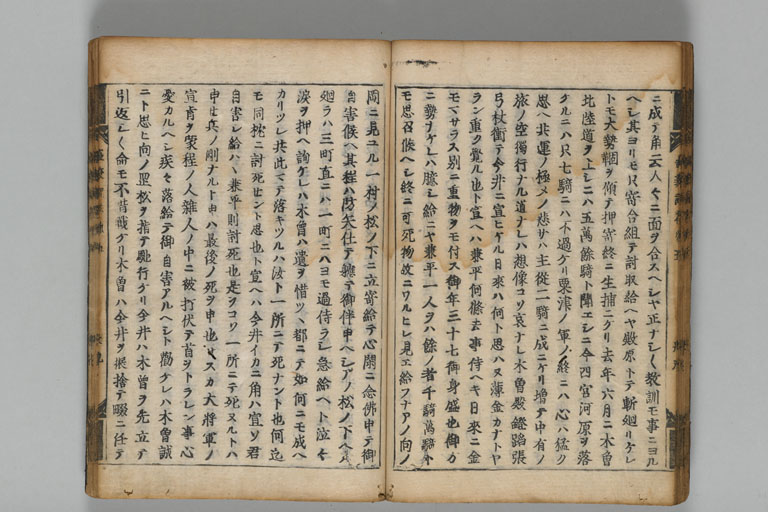 ニ成テ角云人々ニ面ヲ合スヘシヤ正ナシヽク教訓モ事ニヨル
ヘシ其ヨリモ只寄合組テ討取給ヘヤ殿原トテ斬廻リケレ
トモ大勢轡ヲ傾テ押寄終ニ生捕ニケリ去年六月ニ木曽
北陸道ヲ上シニハ五萬餘騎ト聞エシニ今四宮河原ヲ落
クルニハ只七騎ニハ不過ケリ粟津ノ軍ノ終ニハ心ハ猛ク
思ヘ共運ノ極メノ悲サハ主從二騎ニ成ニケリ増テ中有ノ
旅ノ空獨行ナル道ナレハ想像コソ哀ナレ木曽殿鐙蹈張
弓杖衝テ今井ニ宣ヒケルハ日來ハ何ト思ハヌ薄金カナトヤ
ラン重ク覺ル也ト宣ヘハ兼平何條去事侍ヘキ日來ニ金
モマサラス別ニ重物ヲモ付ス御年三十七御身盛也御方
ニ勢ナケレハ臆シ給ニヤ兼平一人ヲハ餘ノ者千騎萬騎ト
モ思召候ヘシ終ニ可死物故ニワルヒレ見エ給フナアノ向ノ
岡ニ見ユル一村ノ松ノ下ニ立寄給テ心閑ニ念佛申テ御
自害候ヘ其程ハ防矢仕テ軈テ御伴申ヘシアノ松ノ下ヘハ
廻ラハ三町直ニハ一町ニハヨモ過侍ラシ急給ヘト泣々
涙ヲ押ヘテ諫ケレハ木曽ハ遺ヲ惜ツヽ都ニテ如何ニモ成ヘ
カリツレ共此マテ落キツルハ汝ト一所ニテ死ナント也何迄
モ同枕ニ討死セント思也ト宣ヘハ今井イカニ角ハ宣ソ君
自害シ給ハヽ兼平則討死也是ヲコソ一所ニテ死ヌルトハ
申セ兵ノ剛ナルト申ハ最後ノ死ヲ申也サスカ大將軍ノ
宣旨ヲ蒙程ノ人雜人ノ中ニ被打伏テ首ヲトラレン事心
憂カルヘシ疾々落給テ御自害アルヘシト勸ケレハ木曽誠
ニト思ヒ向ノ岡松ヲ指テ馳行ケリ今井ハ木曽ヲ先立テ
引返シヽク命モ不惜戰ケリ木曽ハ今井ヲ振捨テ畷ニ任テ